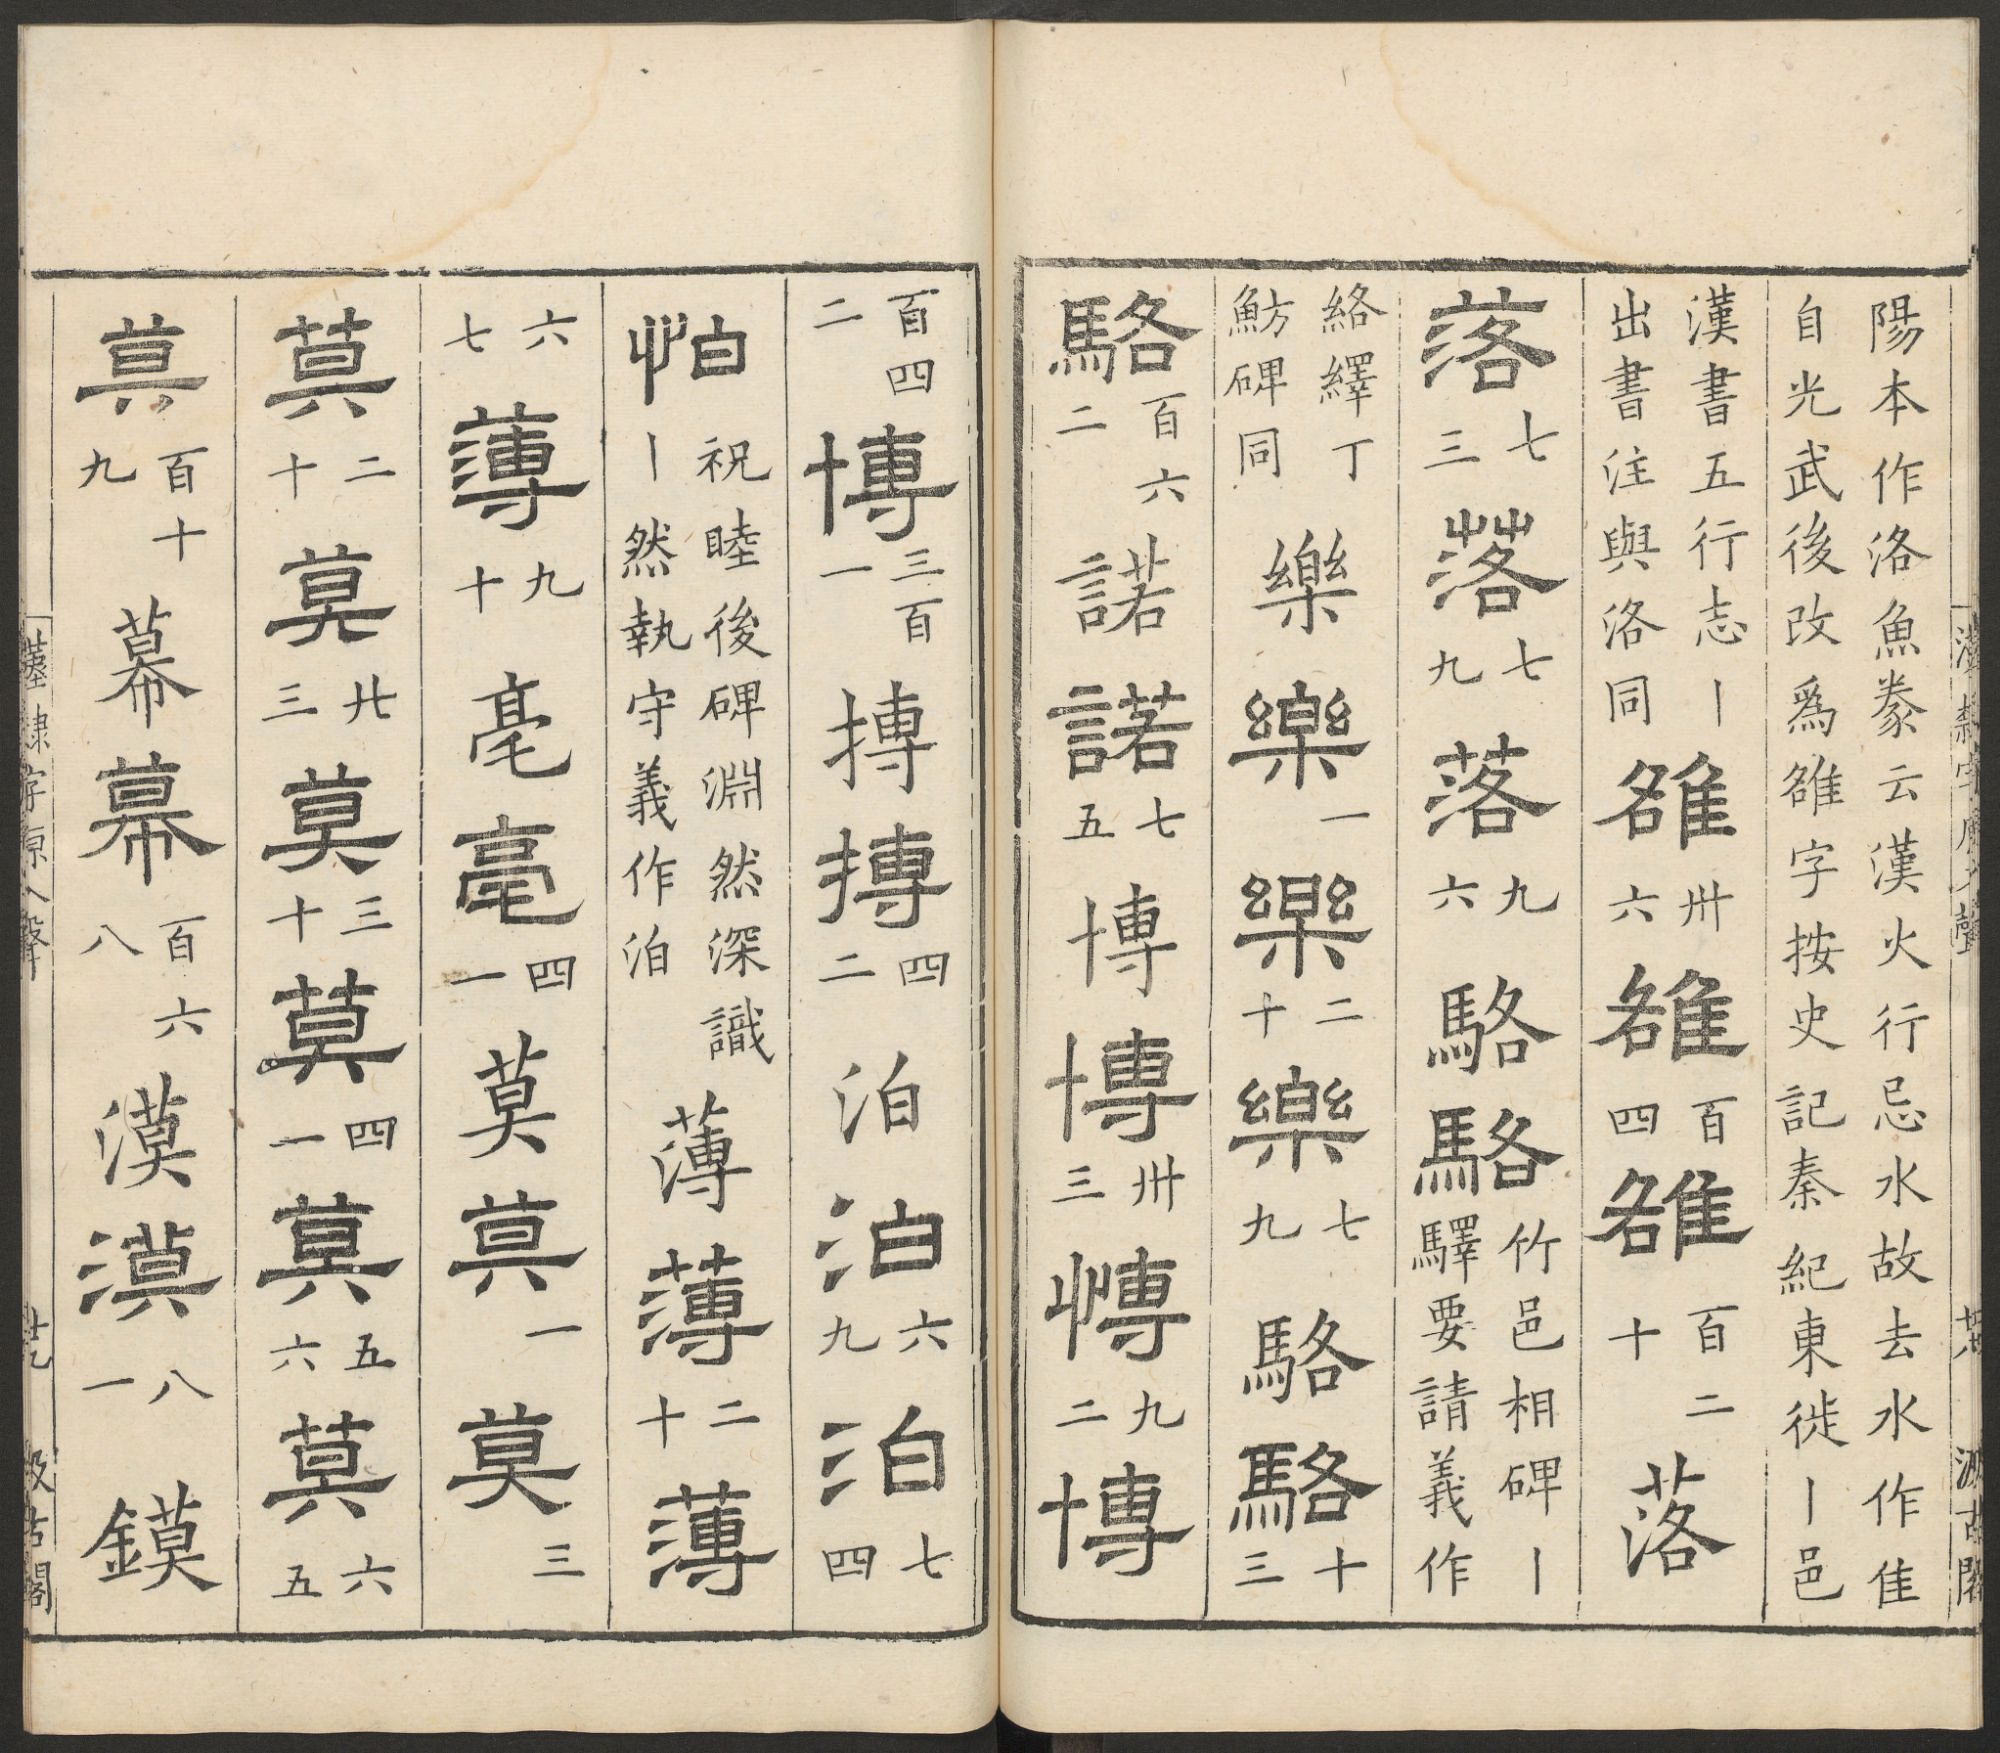 陽本作洛魚豢云漢火行忌水故去水作佳
自光武後改爲雒字按史記秦紀東徙丨邑
漢書五行志丨出書注與洛同雒卅六雒百四雒百二十落
落七三落七九落九六駱駱竹邑相碑丨驛要請義作
絡繹丁魴碑同樂樂一樂二十樂七九駱駱十三
駱百六二諾諾七五博博卅三愽九二博
百四二博三百一搏搏四二泊泊六九泊七四
怕祝睦後碑淵然深識丨然執守義作泊薄薄二十薄
六七薄九十亳亳四一莫莫一莫三
莫二十莫廿三莫三十莫四一莫五六莫六五
莫百十九幕幕百六八漠漠八一鏌
漢隸字原入聲
汲古閣